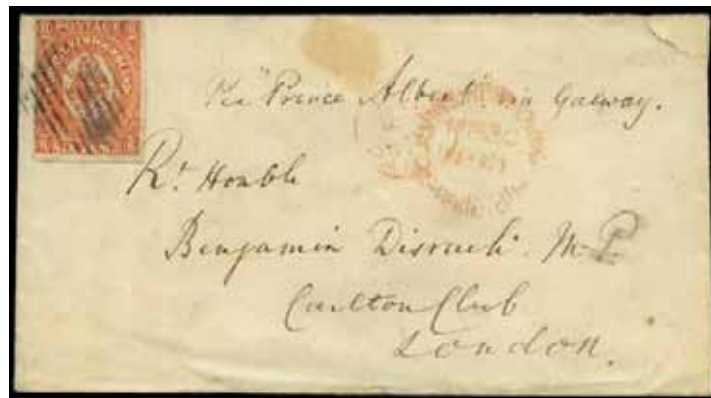 POSTAGE
Per "Prince Albert" via Galway.
Rt Honble
Benjamin Disraeli. M.P.
Carlton Club
London.